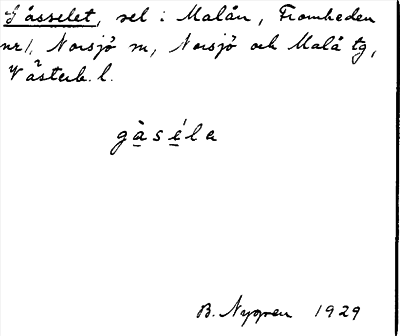 Gåsselet, sel i Malån, Fromheden
nr 1, Norsjö sn, Norsjö och Malå tg,
Västerb. l.
gàséla
B. Nygren 1929